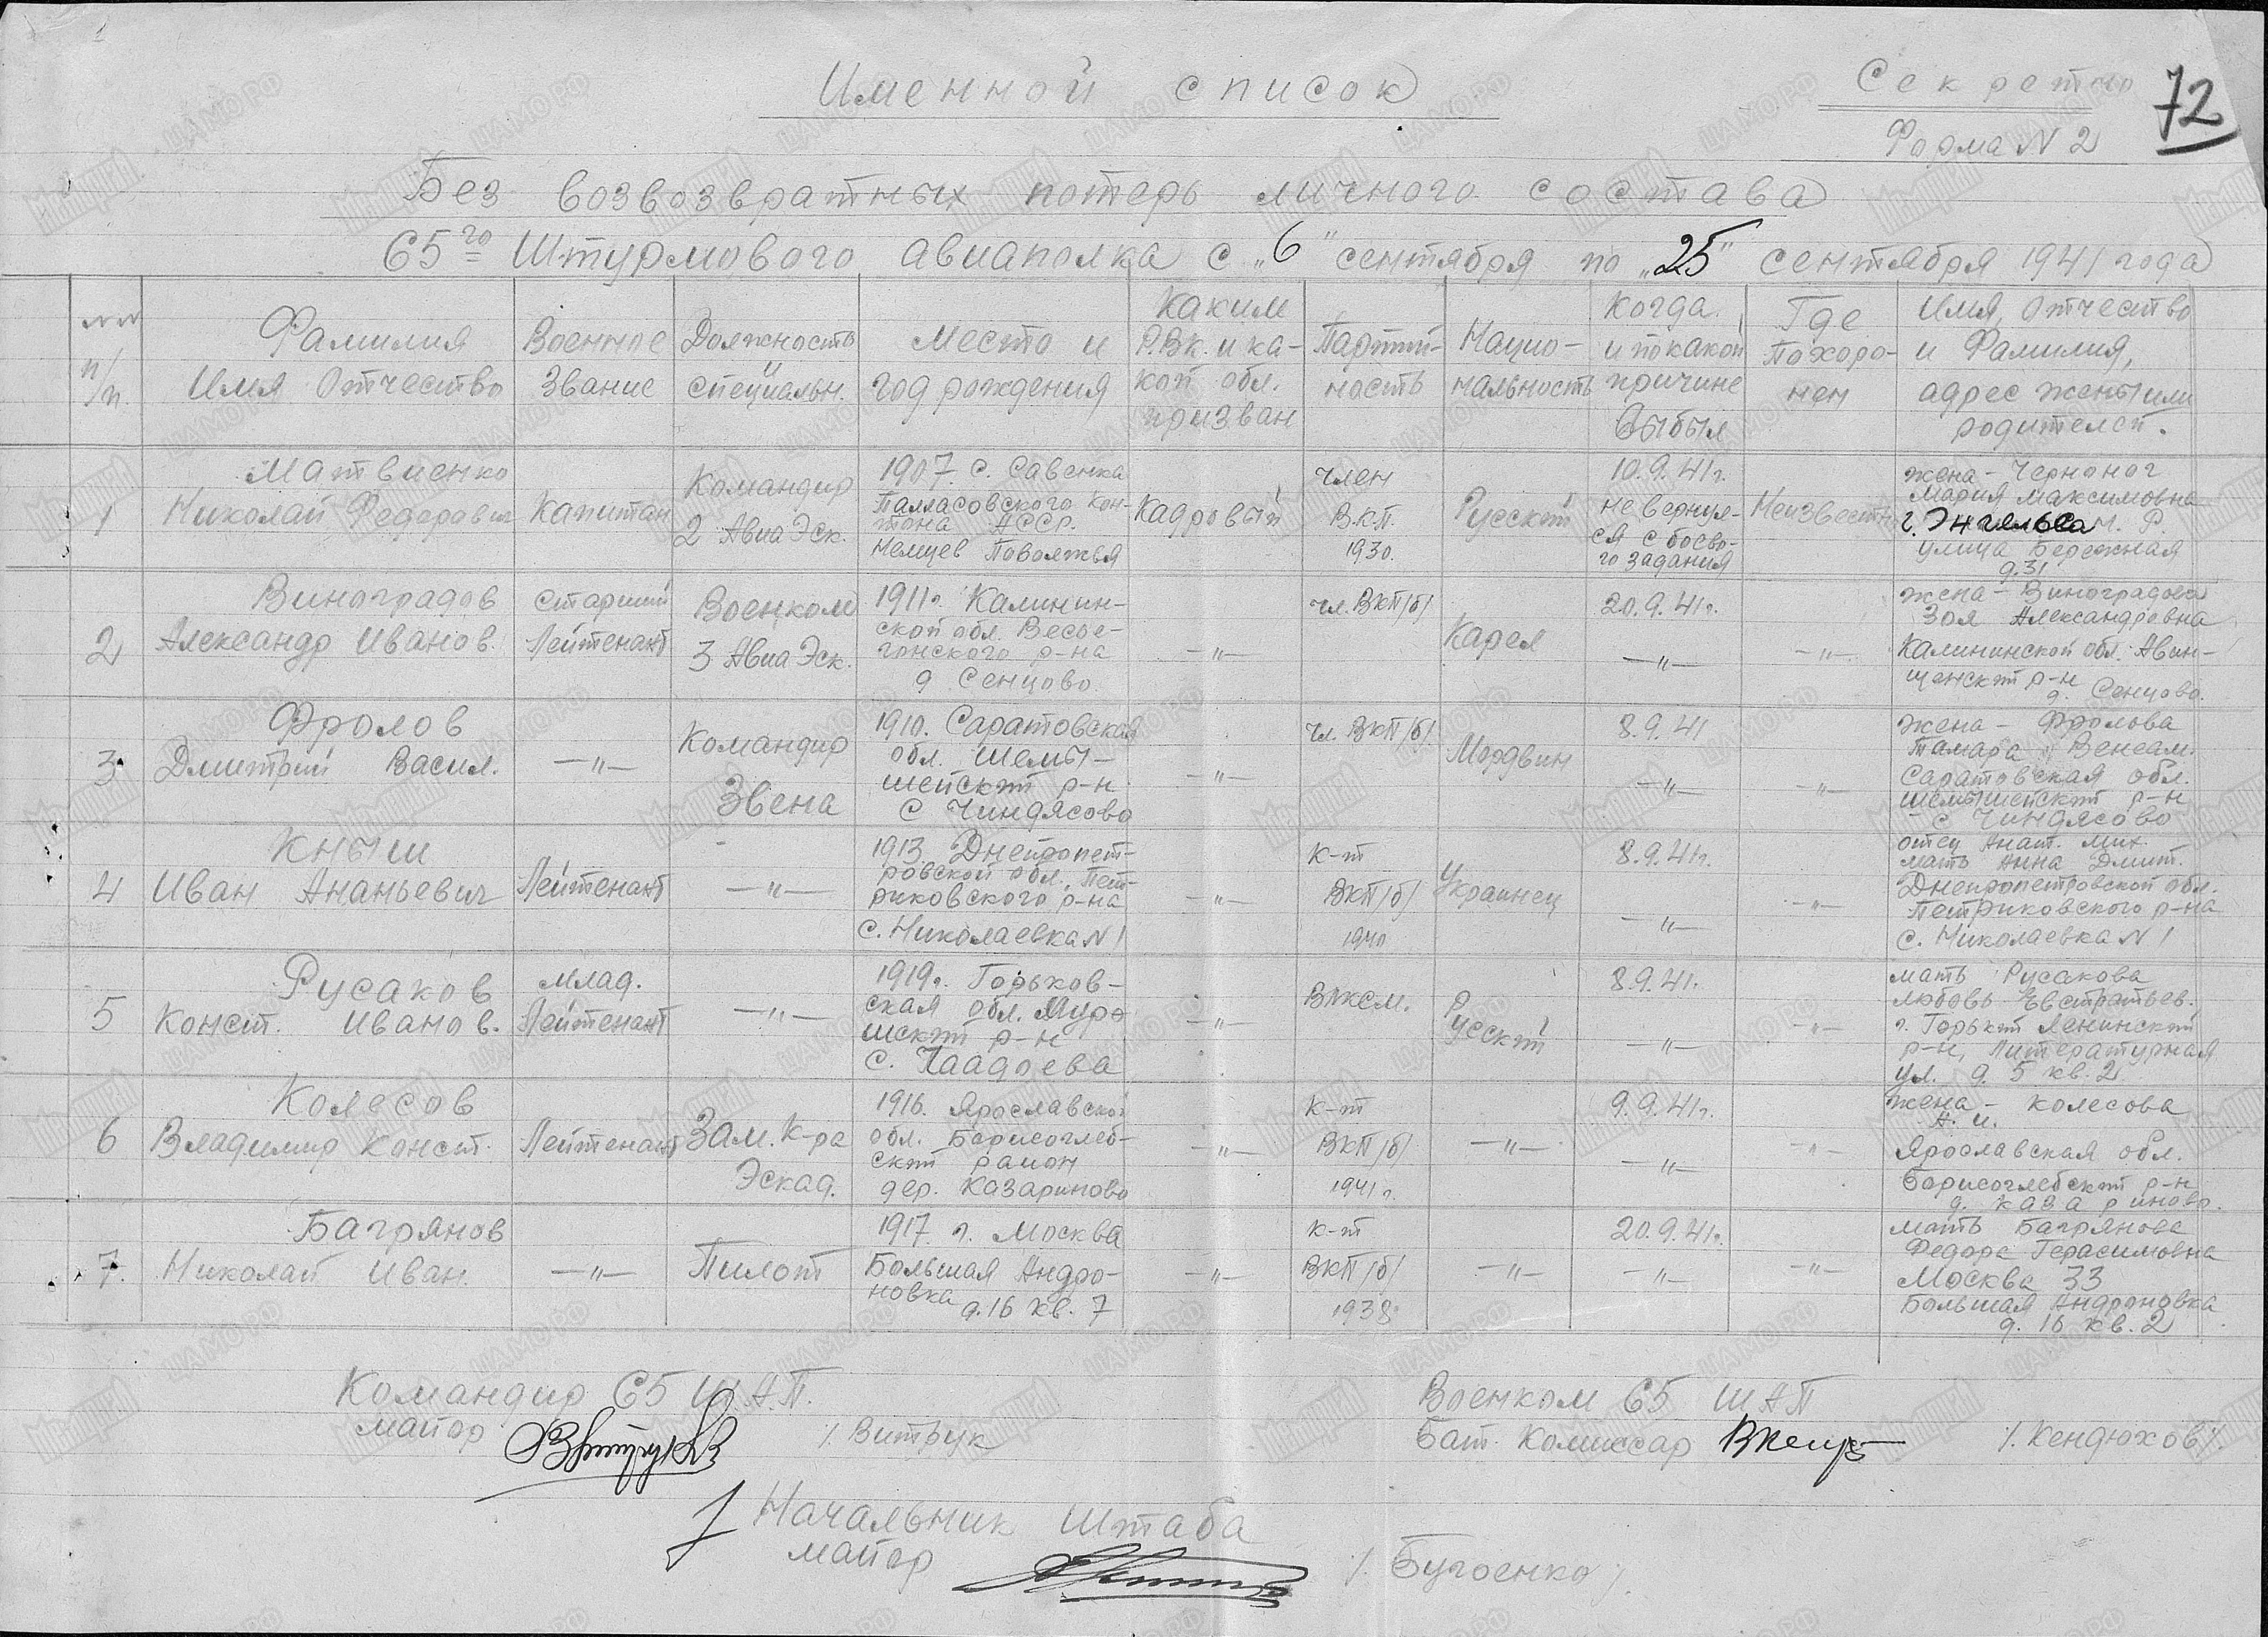 Именной список
Секретно
72
Форма N 2
Без возвозвратных потерь личного состава
65го Штурмового авиаполка с „6" сентября по „25" сентября 1941 года
NN п/п.
Фамилия
Имя Отчество
Военное
Звание
Должность
и
специальн.
Место и
год рождения
Каким
Р.В.К. и ка-
кой обл.
призван
Партий-
ность
Нацио-
нальность
Когда
и по какой
причине
выбыл
Где
Похоро-
нен
Имя, Отчество
и Фамилия,
адрес жены или
родителей.
1
Матвиенко
Николай Федорович
Капитан
Командир
2 Авиа Эск.
1907. с. Савенка
Палласовского Кон-
тона АССР.
Немцев Поволжья
Кадровый
член
В.К.П.
1930.
Русский
10.9.41г.
не вернул-
ся с боево-
го задания
Неизвестн
жена - Черноног
Мария Максимовна
г. Энгельса Н. Р.
улица Бережная
д.31
2
Виноградов
Александр Иванов.
Старший
Лейтенант
Военком
3 Авиа Эск.
1911г. Калинин-
ской обл. Весье-
гонского р-на
д Сенцово.
-"-
чл. ВКП/б/
Карел
20.9.41г.
-"-
-"-
жена - Виноградова
Зоя Александровна
Калининской обл. Авин-
щенский р-н
д. Сенцово.
3
Фролов
Дмитрий Васил.
-"-
Командир
Звена
1910. Саратовская
обл. Шемы-
шейский р-н
с Чиндясово
-"-
чл. ВКП/б/
Мордвин
8.9.41
-"-
-"-
жена - Фролова
Тамара Венеам.
Саратовская обл.
Шемышейский р-н
с Чиндясово
4
Кныш
Иван Ананьевич
Лейтенант
-"-
1913. Днепропет-
ровской обл. Пет-
риковского р-на
с. Николаевка N 1
-"-
к-т
ВКП/б/
1940
Украинец
8.9.41г.
-"-
-"-
отец Анат. Мих.
мать Анна Дмит.
Днепропетровской обл.
Петриковского р-на
с. Николаевка N 1
5
Русаков
Конст. Иванов.
млад.
Лейтенант
-"-
1919г. Горьков-
ская обл. Муро
шский р-н
с. Чаадаева
-"-
ВЛКСМ.
Русский
8.9.41г.
-"-
-"-
мать Русакова
Любовь Евстратьев.
г. Горький Ленинский
р-н, Литературная
ул. д. 5 кв. 2
6
Колесов
Владимир Конст.
Лейтенант
Зам. К-ра
Эскад.
1916. Ярославской
обл. Борисоглеб-
ский район
дер. Казариново
-"-
к-т
ВКП/б/
1941г.
-"-
9.9.41г.
-"-
-"-
жена - Колесова
А. И.
Ярославская обл.
Борисоглебский р-н
д. Казариново.
7.
Багрянов
Николай Иван.
-"-
Пилот
1917. г. Москва
Большая Андро-
новка д.16 кв. 7
-"-
к-т
ВКП/б/
1938г.
-"-
20.9.41г.
-"-
-"-
мать Багрянова
Федора Герасимовна
Москва 33
Большая Андроновка
д. 16 кв. 2
Командир 65 Ш.А.П.
майор
/. Витрук
Военком 65 ШАП
Бат. Комиссар
/. Кендюхов/.
Начальник Штаба
майор
/. Бугоенко/.